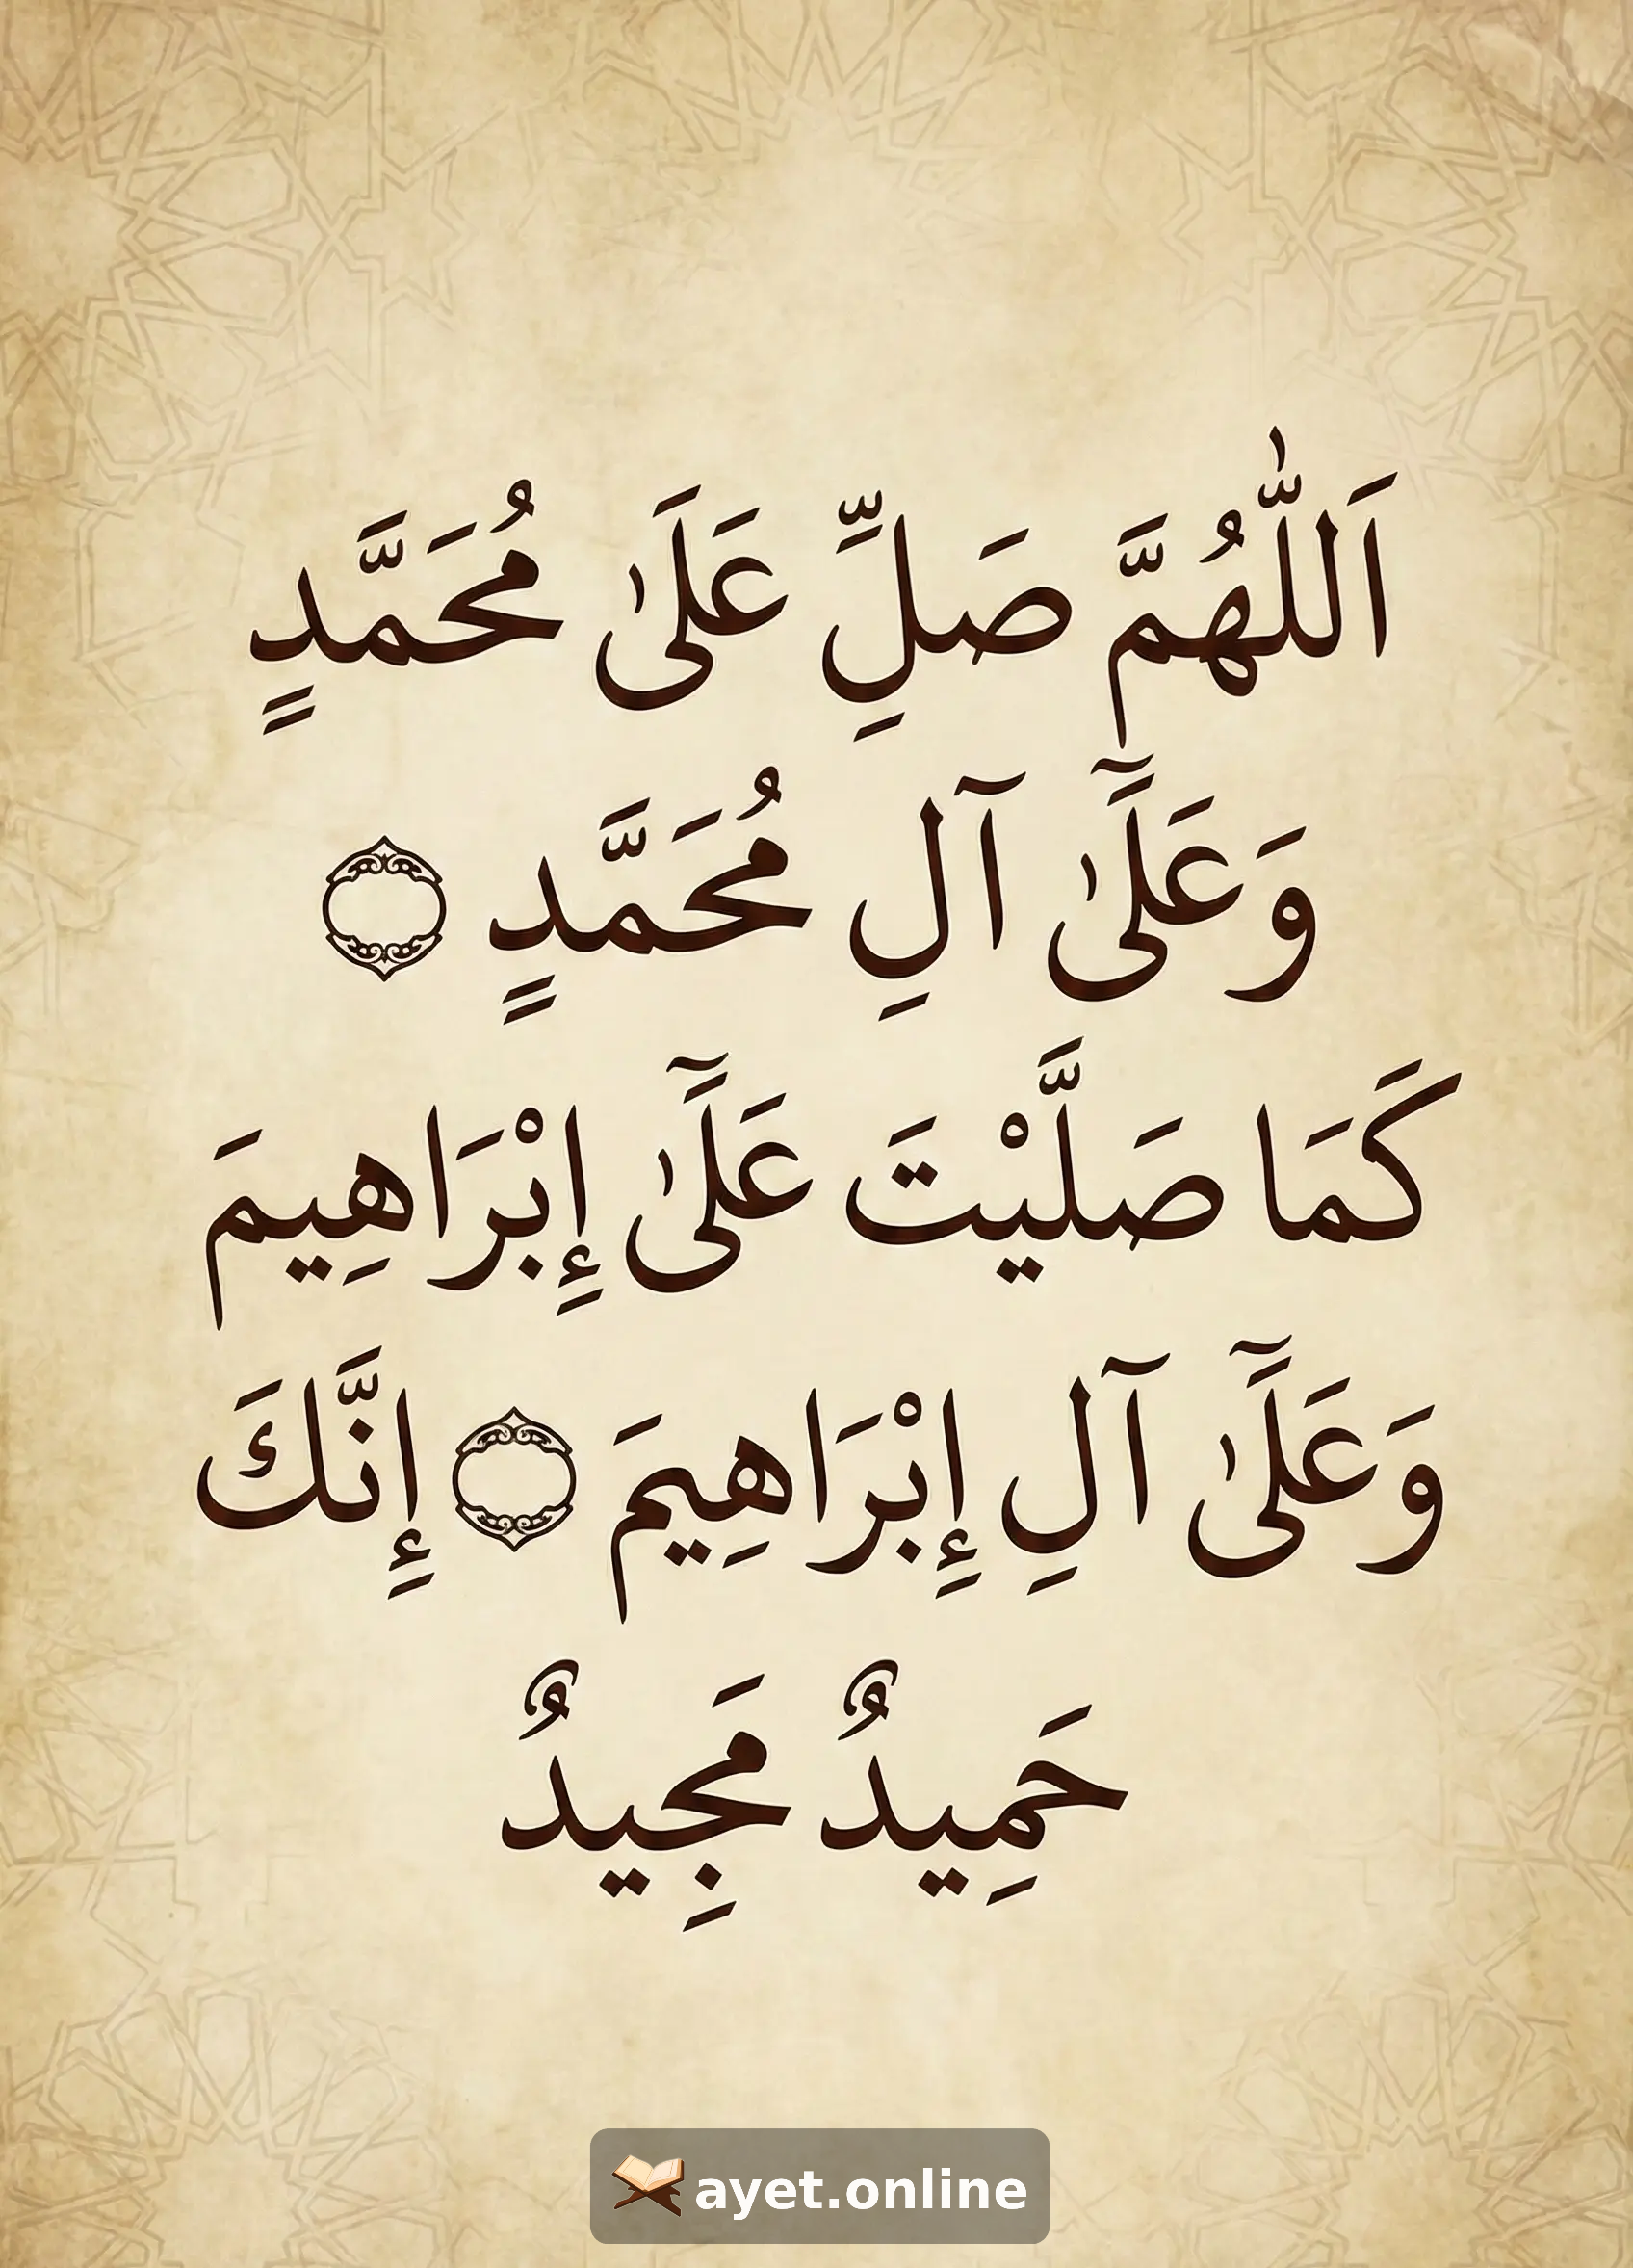 اَللّٰهُمَّ صَلِّ عَلَىٰ مُحَمَّدٍ
وَعَلَىٰٓ آلِ مُحَمَّدٍ ۝
كَمَا صَلَّيْتَ عَلَىٰٓ إِبْرَاهِيمَ
وَعَلَىٰٓ آلِ إِبْرَاهِيمَ ۝ إِنَّكَ
حَمِيدٌ مَجِيدٌ
ayet.online